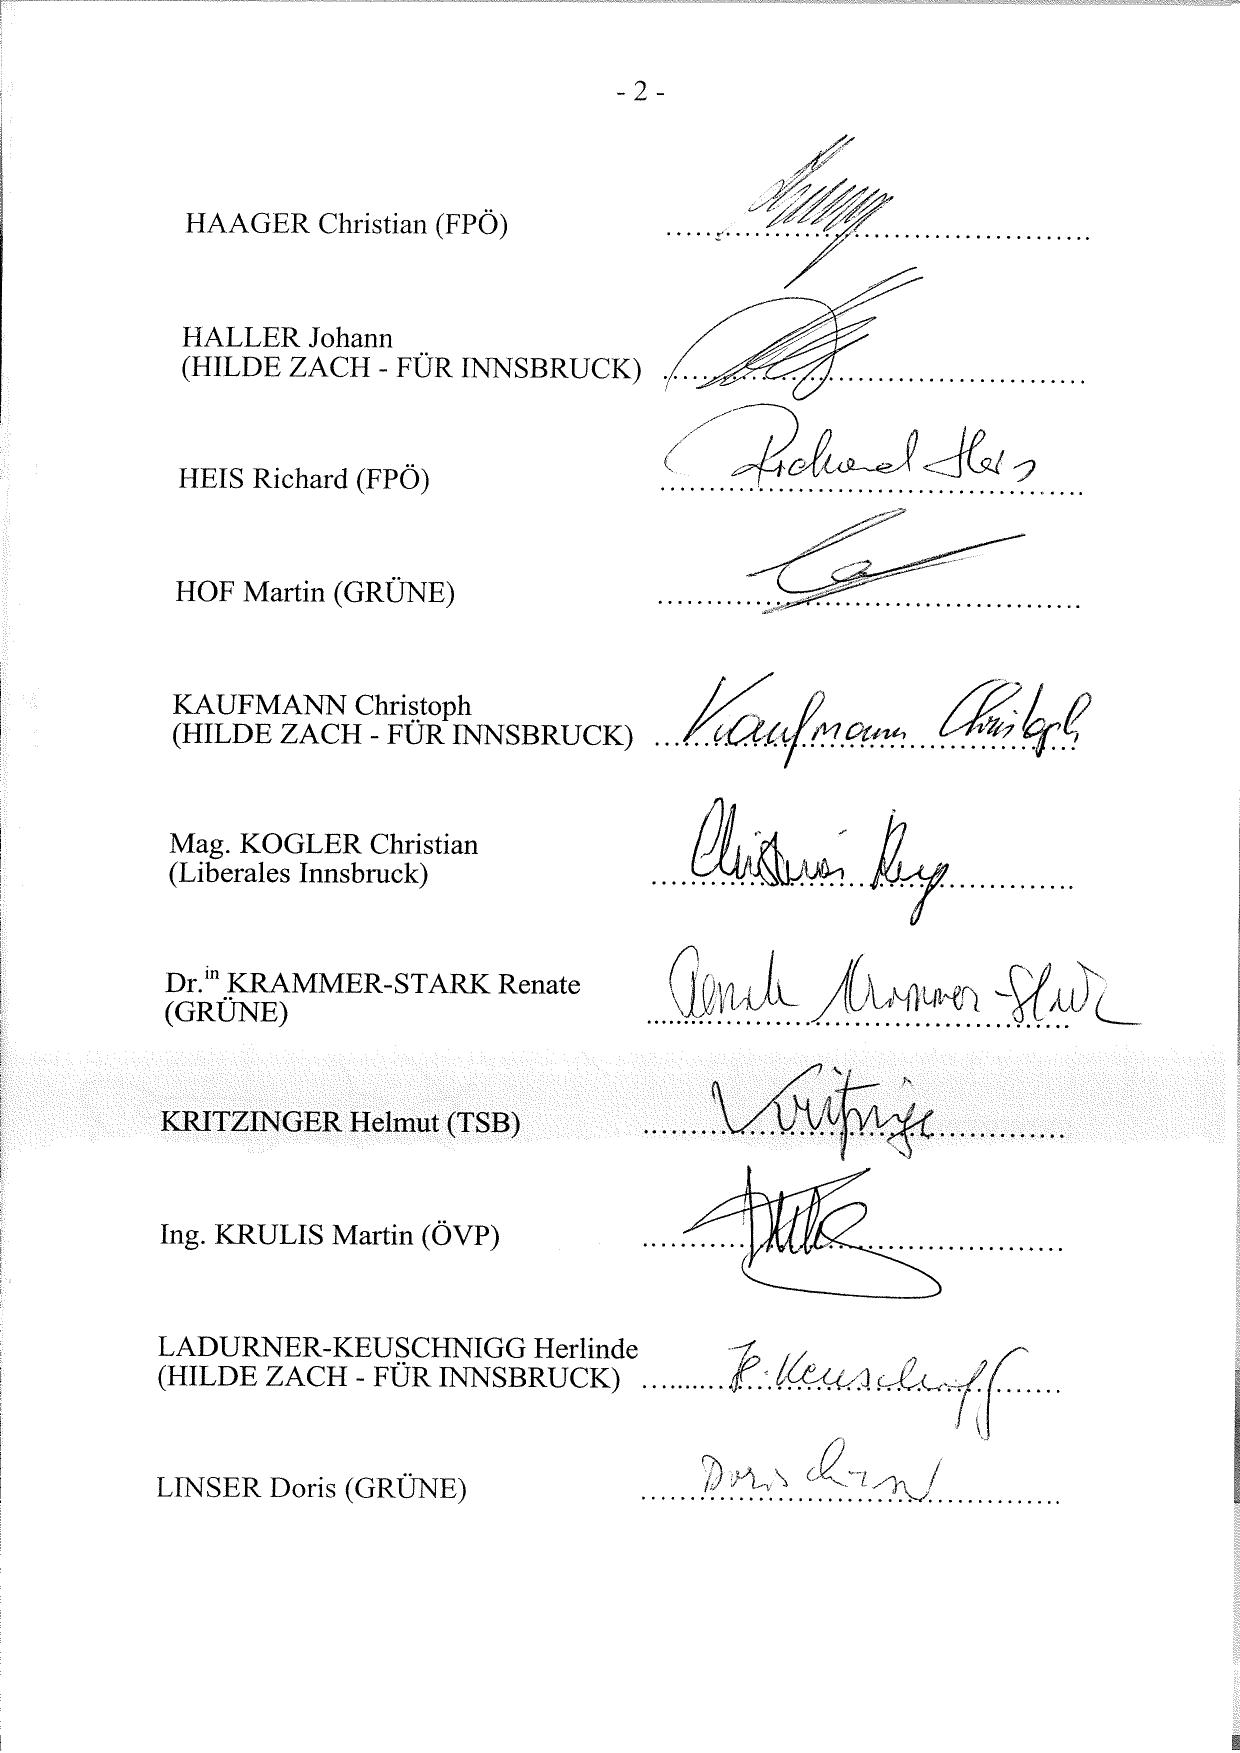 - 2 -
HAAGER Christian (FPÖ)
HALLER Johann
(HILDE ZACH - FÜR INNSBRUCK)
HEIS Richard (FPÖ)
Richard Heis
HOF Martin (GRÜNE)
KAUFMANN Christoph
(HILDE ZACH - FÜR INNSBRUCK)
Kaufmann Christoph
Mag. KOGLER Christian
(Liberales Innsbruck)
Christian
Dr.in KRAMMER-STARK Renate
(GRÜNE)
Renate Krammer-Stark
KRITZINGER Helmut (TSB)
Kritzinger
Ing. KRULIS Martin (ÖVP)
LADURNER-KEUSCHNIGG Herlinde
(HILDE ZACH - FÜR INNSBRUCK)
H. Keuschnigg
LINSER Doris (GRÜNE)
Doris Linser